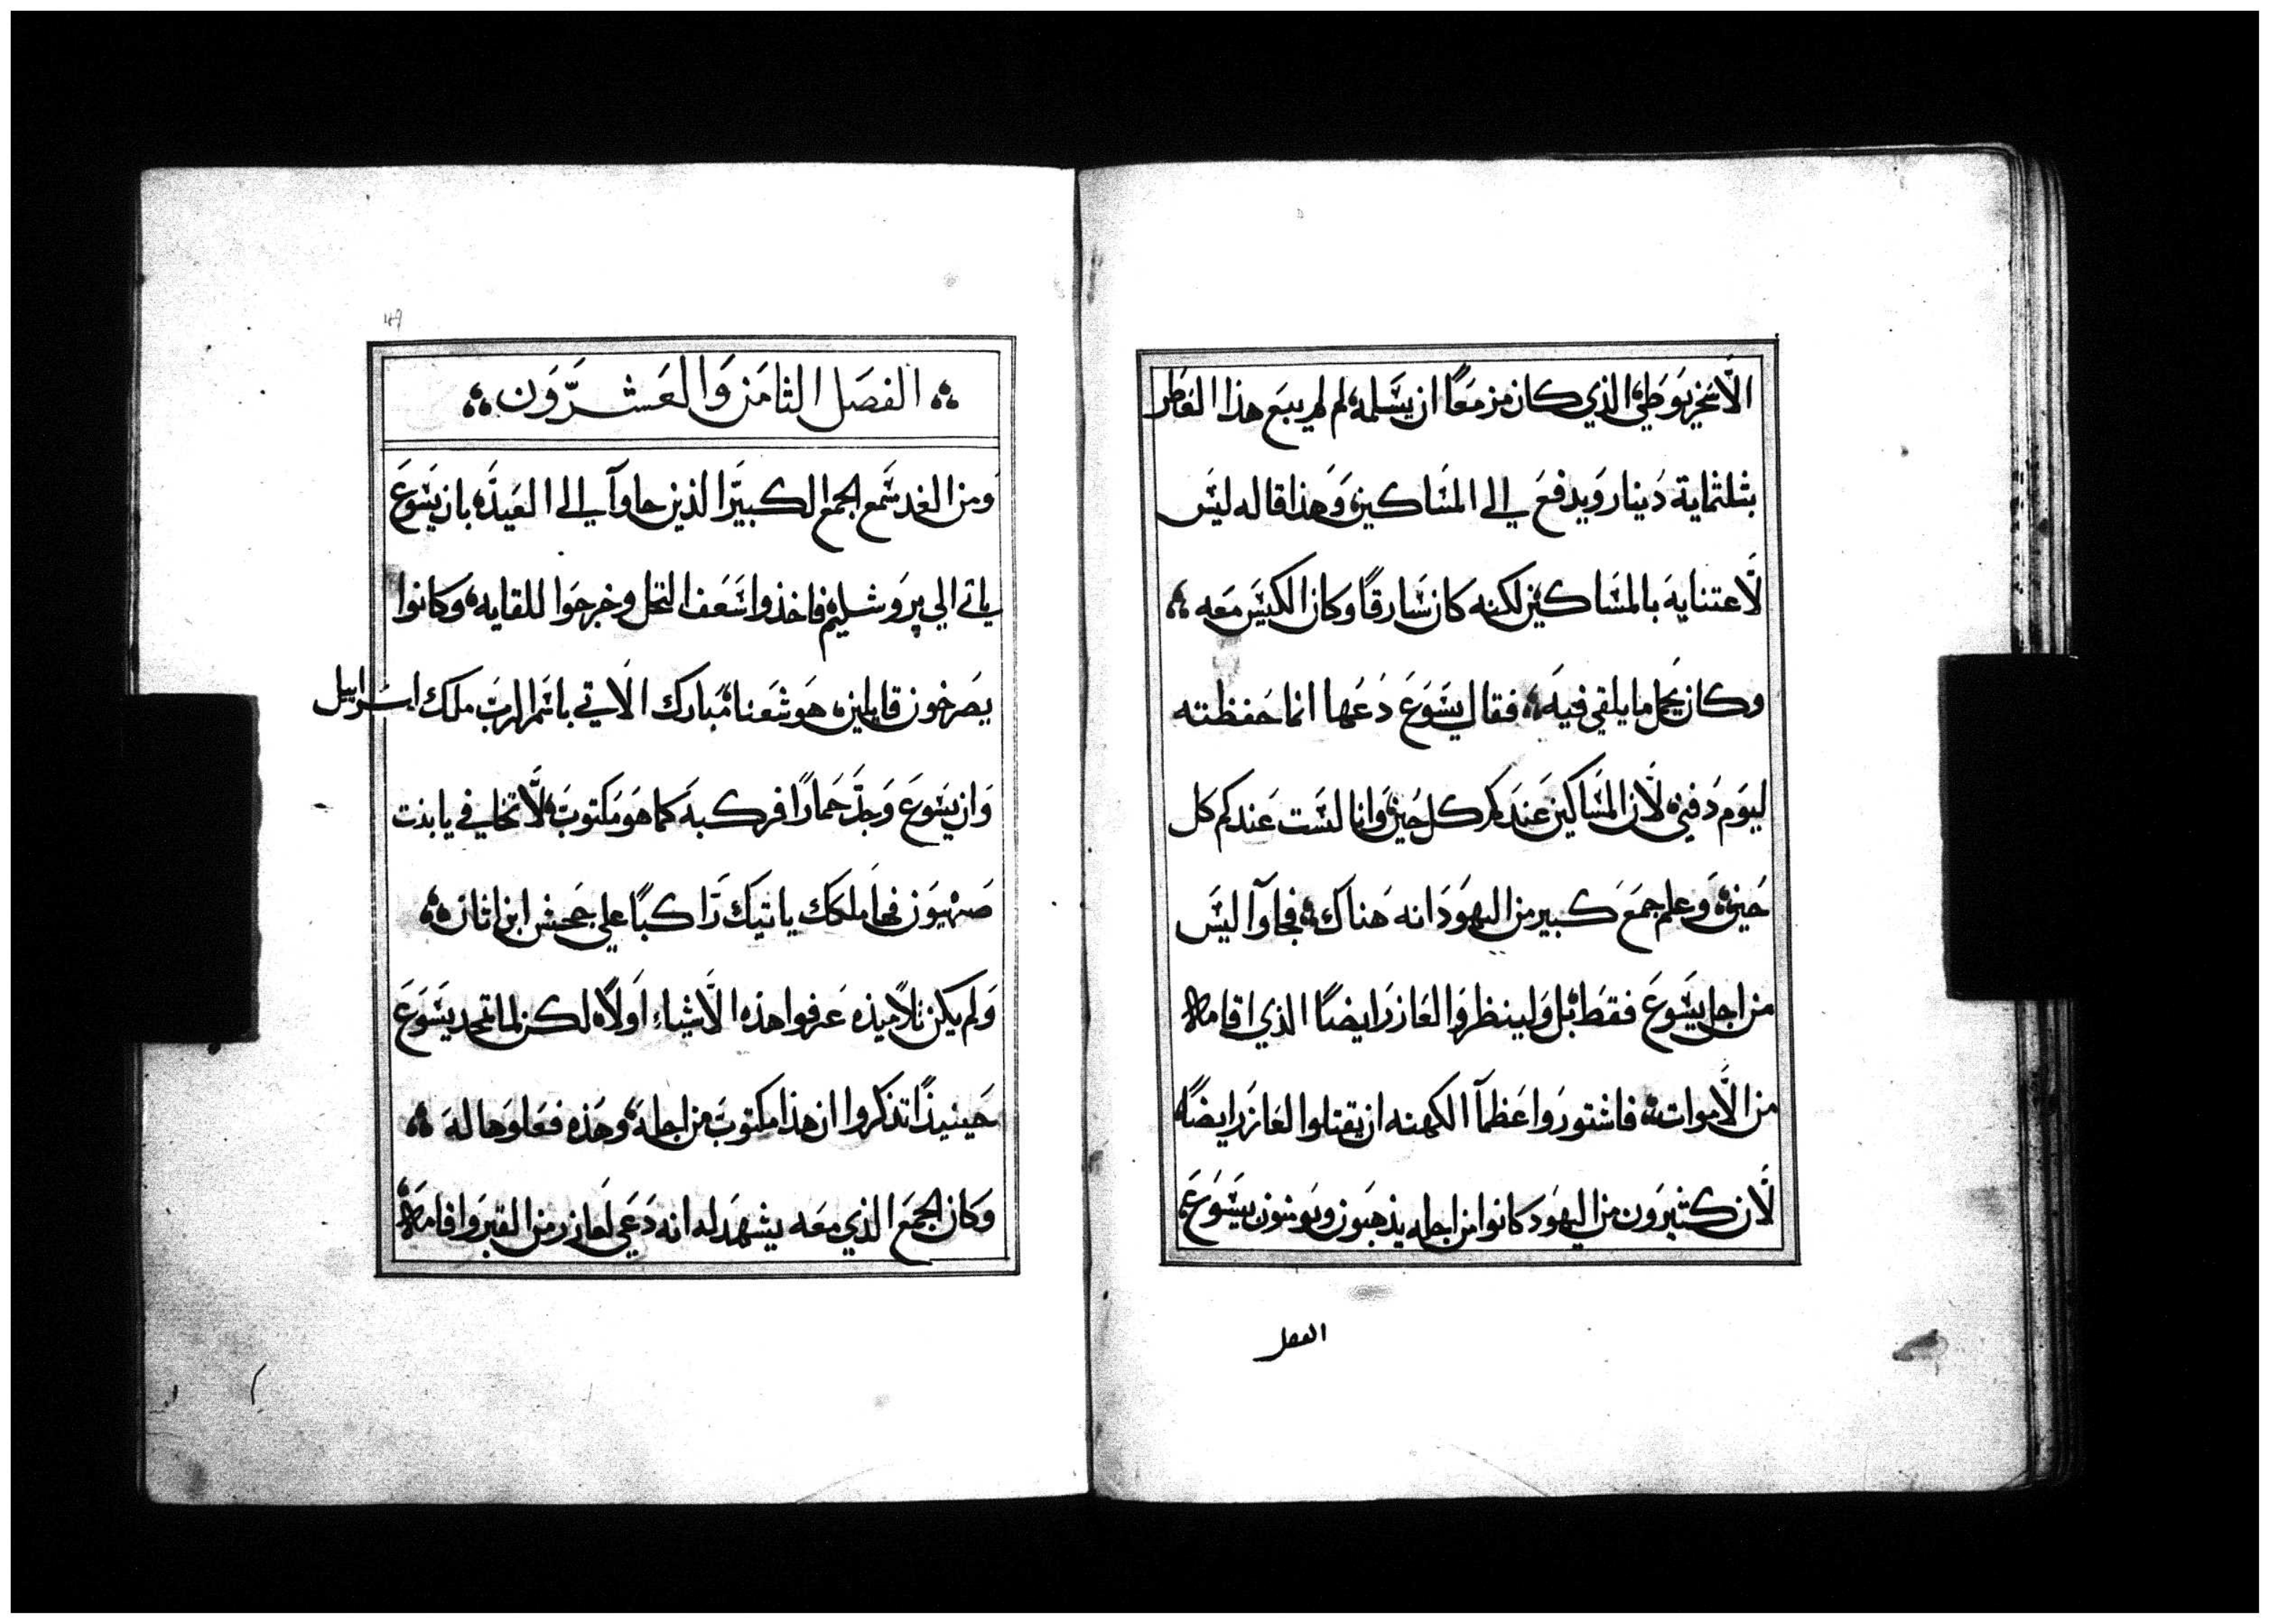 الاسخريوطي الذي كان مزمعًا ان يسلمه لم لم يبع هذا العاطر
بثلثماية دينار ويدفع الي المساكين وهذا قاله ليس
لاعتنايه بالمساكين لكنه كان سارقًا وكان الكيس معه
وكان يحمل ما يلقي فيه فقال يسوع دعها انما حفظته
ليوم دفني لان المساكين عندكم كل حين وانا لست عندكم كل
حين وعلم جمع كبير من اليهود انه هناك فجاوآ ليس
من اجل يسوع فقط بل ولينظروا العازر ايضًا الذي اقامه
من الاموات فاشتوروا عظمآ الكهنه ان يقتلوا لعازر ايضًا
لان كثيرون من اليهود كانوا من اجله يذهبون ويومنون بيسوع
الفصل
49
الفصل الثامن والعشرون
ومن الغد سمع الجمع الكبير الذين جاوآ الي العيد بان يسوع
ياتي الي يروشليم فاخذوا سعف النخل وخرجوا للقايه وكانوا
يصرخون قايلين هوشعنا مبارك الاتي باسم الرب ملك اسراييل
وان يسوع وجد حمارًا فركبه كما هو مكتوب لا تخافي يا بنت
صهيون فها ملكك ياتيك راكبًا علي جحش ابن اتان
ولم يكن تلاميذه عرفوا هذه الاشياء اولًا لكن لما تمجد يسوع
حينيذًا تذكروا ان هذا مكتوب من اجله وهذه فعلوها له
وكان الجمع الذي معه يشهد له انه دعي لعازر من القبر واقامه